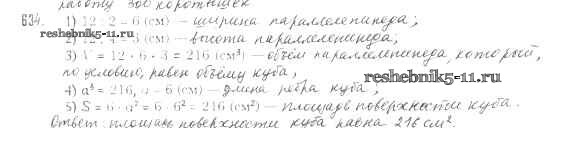 работу 300 коротышек
634. 1) 12 : 2 = 6 (см) — ширина параллелепипеда;
2) 12 : 4 = 3 (см) — высота параллелепипеда;
3) V = 12 · 6 · 3 = 216 (см³) — объём параллелепипеда, который,
по условию, равен объёму куба,
reshebnik5-11.ru
reshebnik5-11.ru
4) a³ = 216, a = 6 (см) — длина ребра куба;
5) S = 6 · a² = 6 · 6² = 216 (см²) — площадь поверхности куба.
Ответ: площадь поверхности куба равна 216 см².